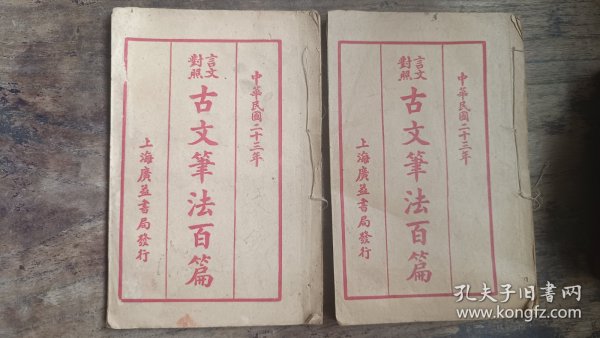 中華民國二十三年
言文
對照
古文筆法百篇
上海廣益書局發行
中華民國二十三年
言文
對照
古文筆法百篇
上海廣益書局發行
孔夫子旧書网
www.kongfz.com